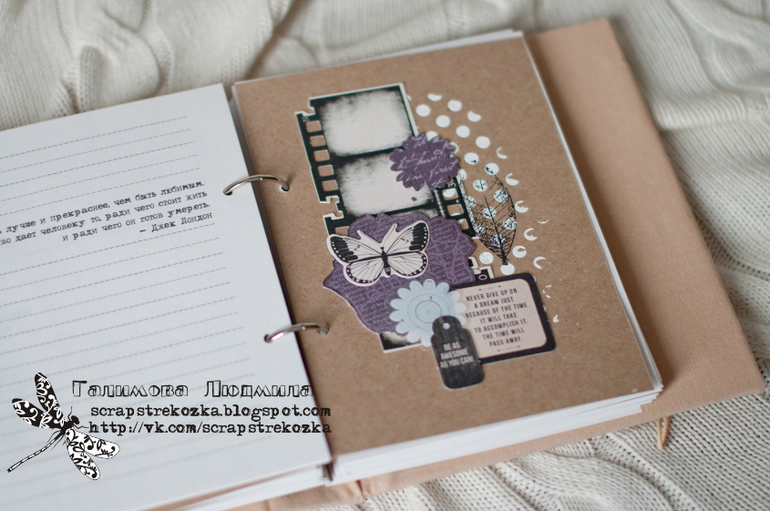 лучше и прекраснее, чем быть любимым.
дает человеку то, ради чего стоит жить
и ради чего он готов умереть.
– Джек Лондон
NEVER GIVE UP ON
A DREAM JUST
BECAUSE OF THE TIME
IT WILL TAKE
TO ACCOMPLISH IT.
THE TIME WILL
PASS AWAY.
BE AS
AWESOME
AS YOU CAN!
Галимова Людмила
scrapstrekozka.blogspot.com
http://vk.com/scrapstrekozka